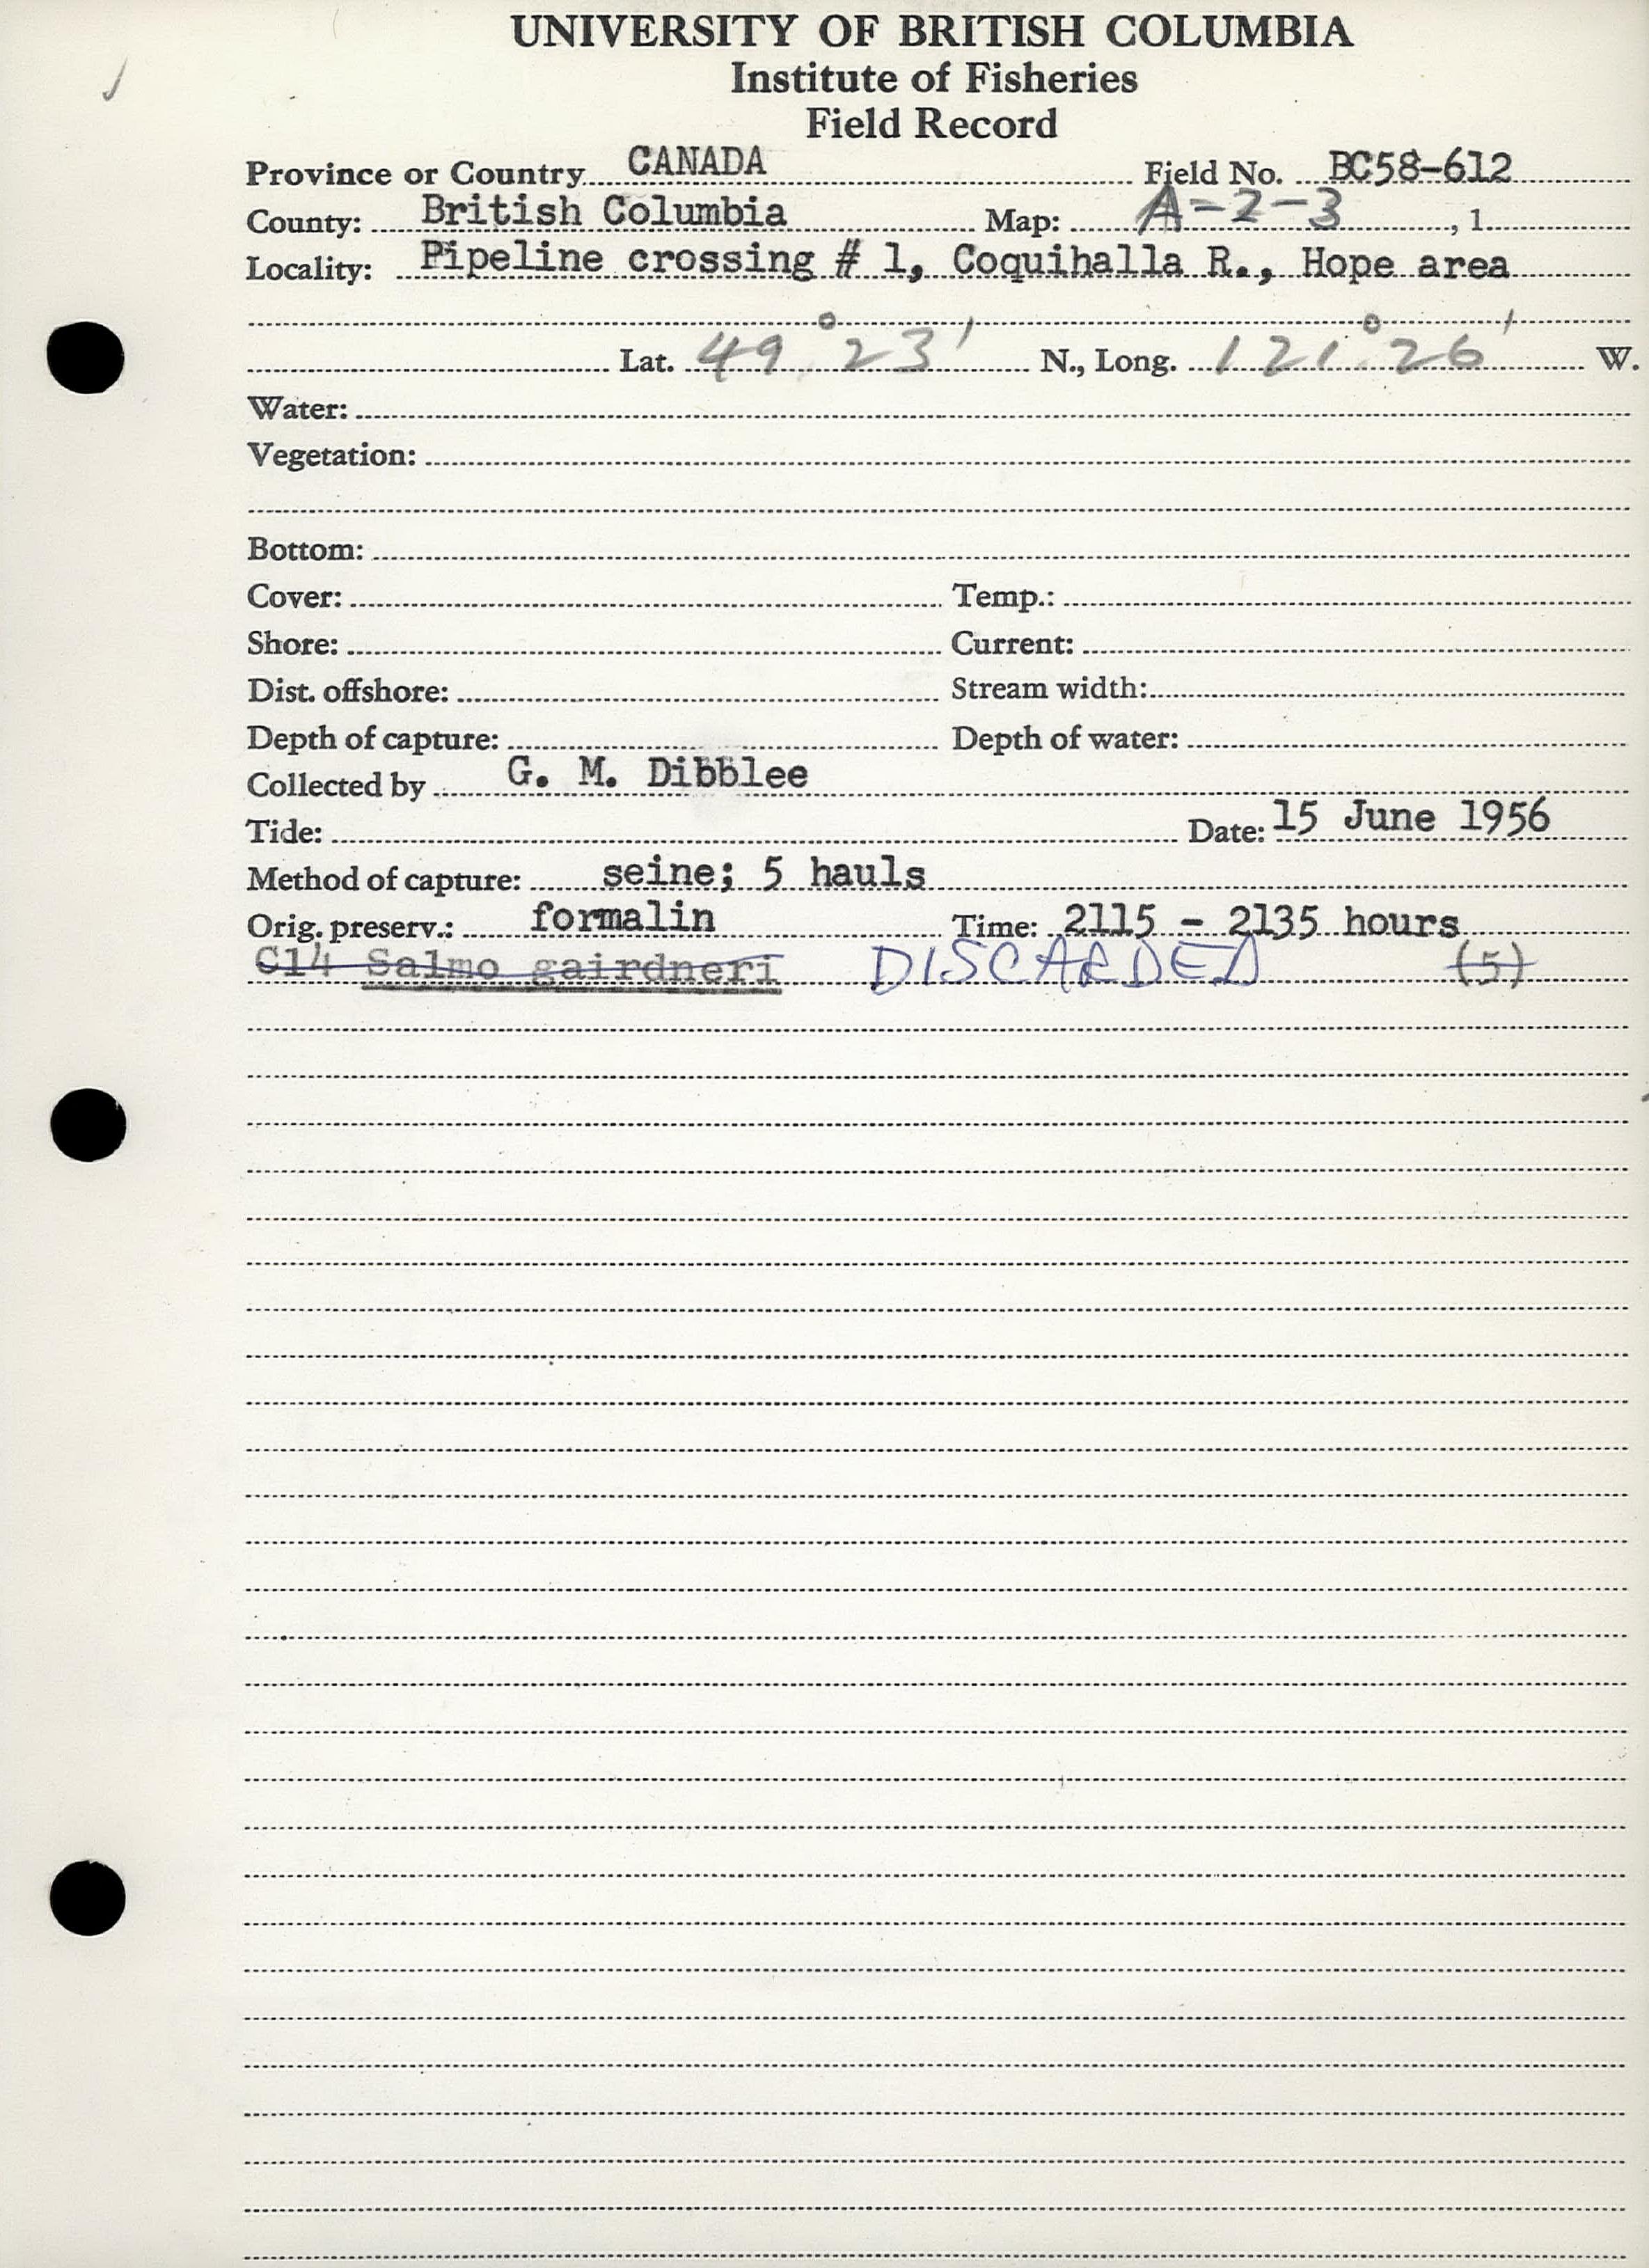 UNIVERSITY OF BRITISH COLUMBIA
Institute of Fisheries
Field Record
Province or Country CANADA Field No. BC58-612
County: British Columbia Map: A-2-3, 1
Locality: Pipeline crossing # 1, Coquihalla R., Hope area
Lat. 49° 23' N., Long. 121° 26' W.
Water:
Vegetation:
Bottom:
Cover: Temp.:
Shore: Current:
Dist. offshore: Stream width:
Depth of capture: Depth of water:
Collected by G. M. Dibblee
Tide: Date: 15 June 1956
Method of capture: seine; 5 hauls
Orig. preserv.: formalin Time: 2115 - 2135 hours
C14 Salmo gairdneri DISCARDED (5)